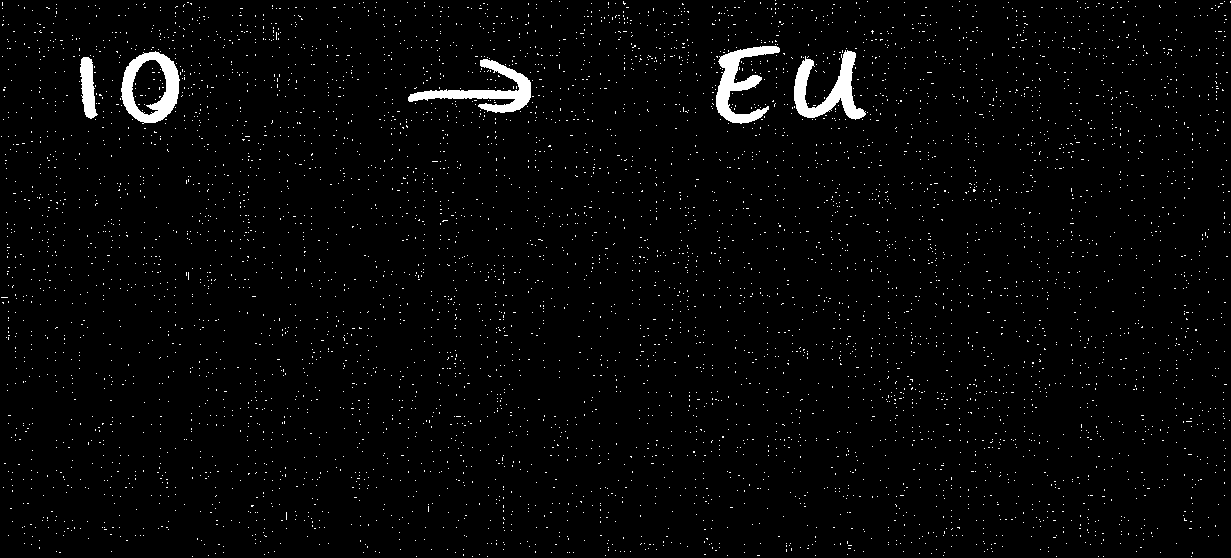 10 → EU